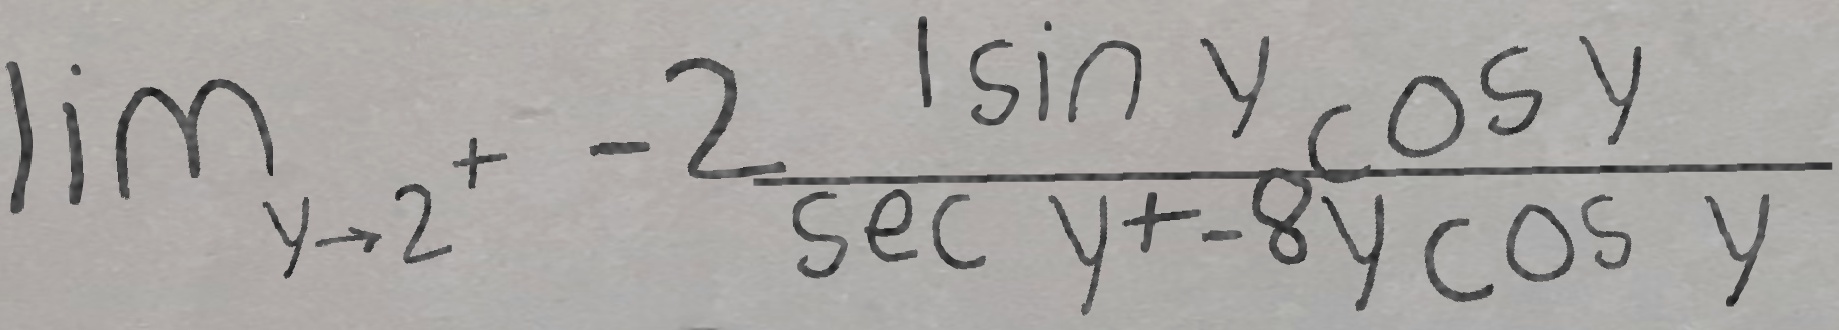 \lim_{y \to 2^+} -2 \frac{1 \sin y \cos y}{\sec y + -8y \cos y}